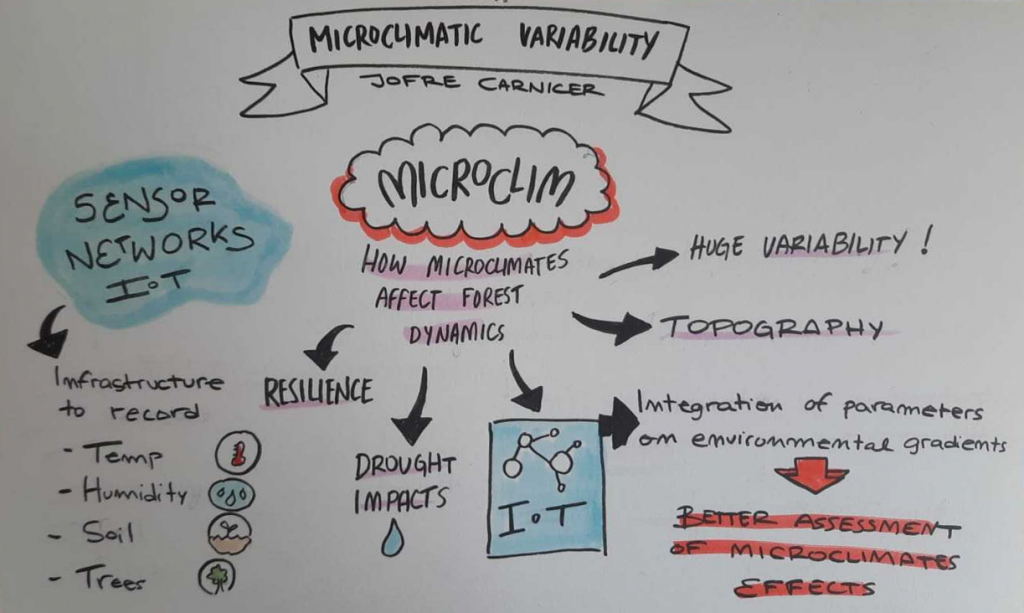 MICROCLIMATIC VARIABILITY
JOFRE CARNICER
MICROCLIM
SENSOR
NETWORKS
IoT
HOW MICROCLIMATES
AFFECT FOREST
DYNAMICS
HUGE VARIABILITY !
TOPOGRAPHY
Infrastructure
to record
- Temp
- Humidity
- Soil
- Trees
RESILIENCE
DROUGHT
IMPACTS
IoT
Integration of parameters
on environmental gradients
BETTER ASSESSMENT
OF MICROCLIMATES
EFFECTS